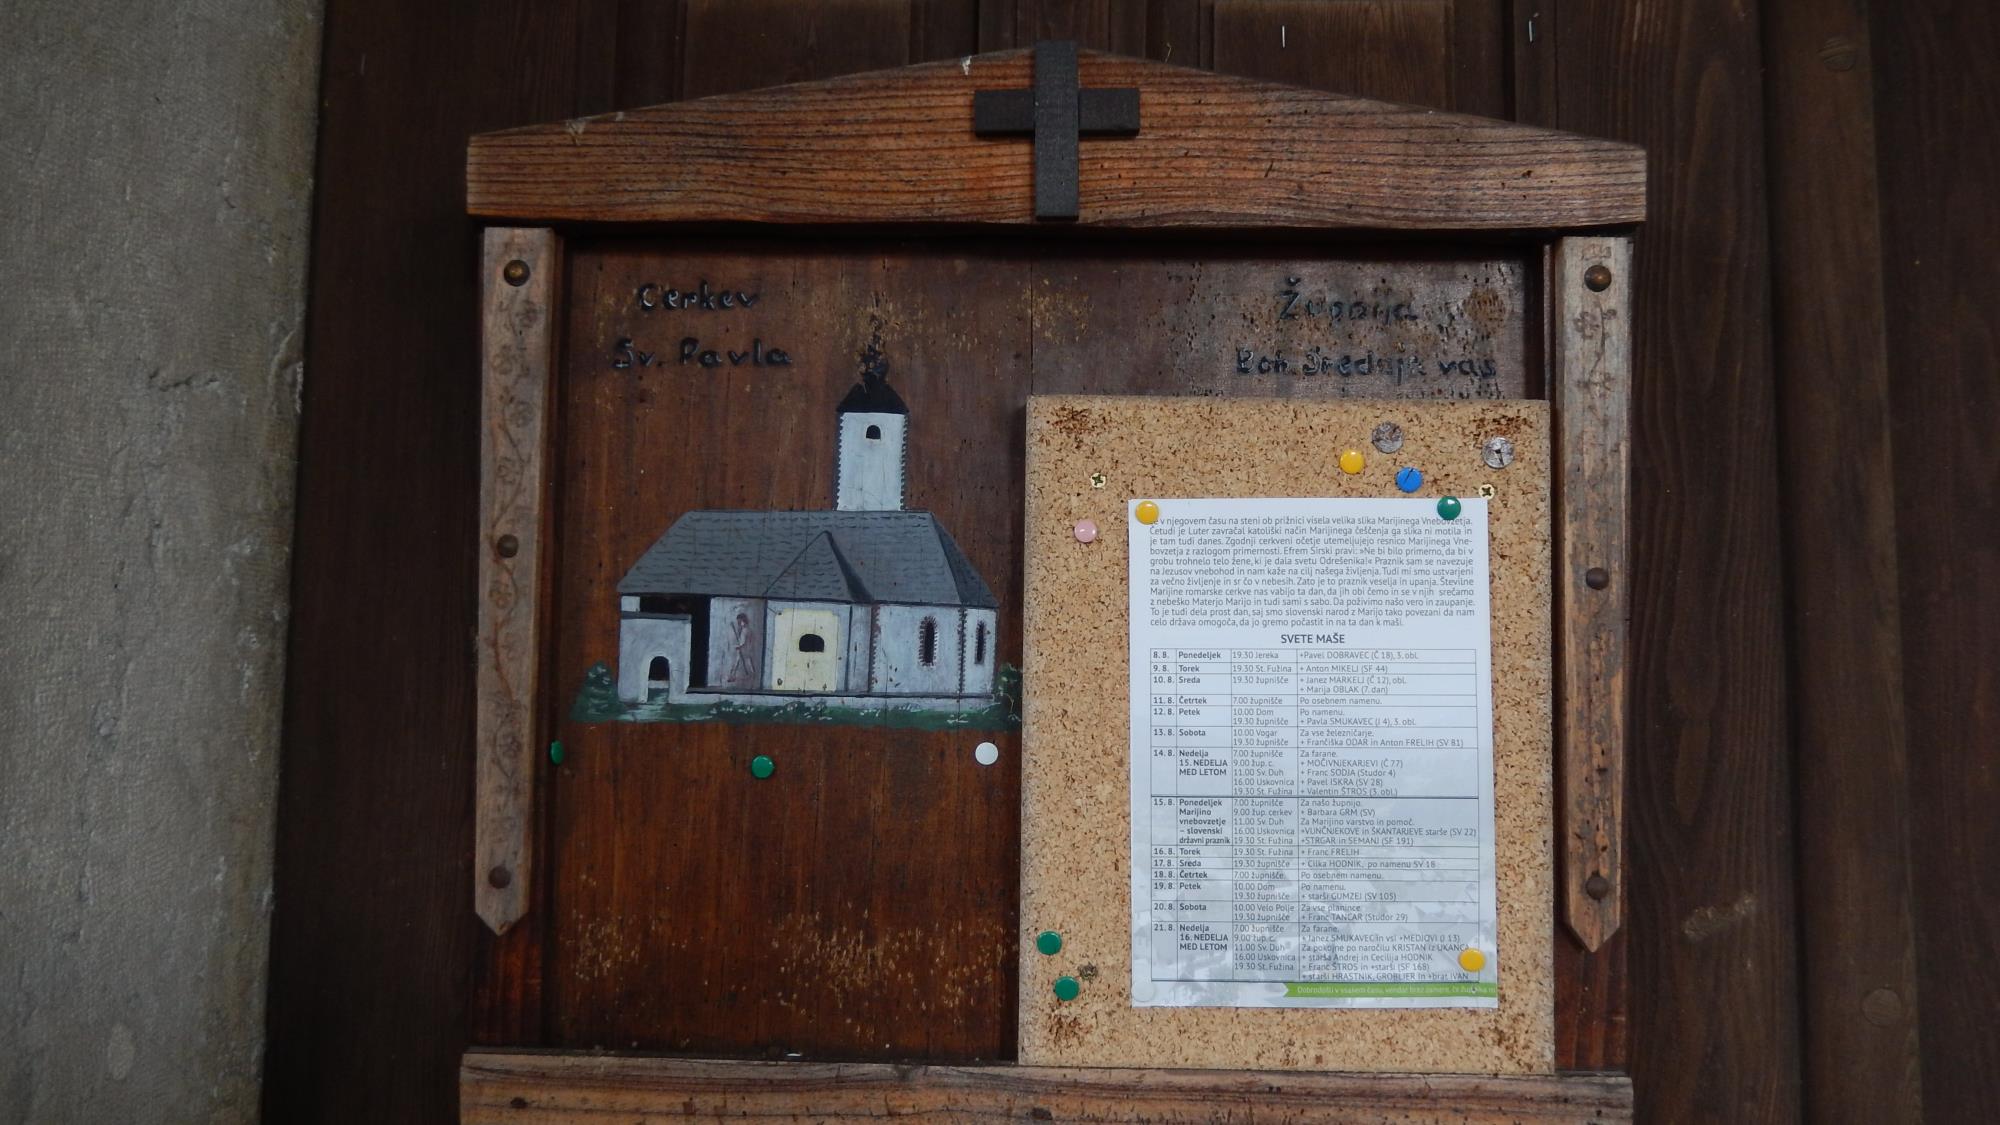 Cerkev
Sv. Pavla
Župnija
Boh. Srednja vas
že v njegovem času na steni ob prižnici visela velika slika Marijinega Vnebovzetja.
Četudi je Luter zavračal katoliški način Marijinega češčenja ga slika ni motila in
je tam tudi danes. Zgodnji cerkveni očetje utemeljujejo resnico Marijinega Vne-
bovzetja z razlogom primernosti. Efrem Sirski pravi: »Ne bi bilo primerno, da bi v
grobu trohnelo telo žene, ki je dala svetu Odrešenika!« Praznik sam se navezuje
na Jezusov vnebohod in nam kaže na cilj našega življenja. Tudi mi smo ustvarjeni
za večno življenje in sr čo v nebesih. Zato je to praznik veselja in upanja. Številne
Marijine romarske cerkve nas vabijo ta dan, da jih obi čemo in se v njih srečamo
z nebeško Materjo Marijo in tudi sami s sabo. Da poživimo našo vero in zaupanje.
To je tudi dela prost dan, saj smo slovenski narod z Marijo tako povezani da nam
celo država omogoča, da jo gremo počastit in na ta dan k maši.
SVETE MAŠE
8. 8. Ponedeljek 19.30 Jereka +Pavel DOBRAVEC (Č 18), 3. obl.
9. 8. Torek 19.30 St. Fužina + Anton MIKELJ (SF 44)
10. 8. Sreda 19.30 župnišče + Janez MARKELJ (Č 12), obl.
+ Marija OBLAK (7. dan)
11. 8. Četrtek 7.00 župnišče Po osebnem namenu.
12. 8. Petek 10.00 Dom Po namenu.
19.30 župnišče + Pavla SMUKAVEC (J 4), 3. obl.
13. 8. Sobota 10.00 Vogar Za vse železničarje.
19.30 župnišče + Frančiška ODAR in Anton FRELIH (SV 81)
14. 8. Nedelja 7.00 župnišče Za farane.
15. NEDELJA 9.00 žup. c. + MOČIVNJEKARJEVI (Č 77)
MED LETOM 11.00 Sv. Duh + Franc SODJA (Studor 4)
16.00 Uskovnica + Pavel ISKRA (SV 28)
19.30 St. Fužina + Valentin ŠTROS (3. obl.)
15. 8. Ponedeljek 7.00 župnišče Za našo župnijo.
Marijino 9.00 žup. cerkev + Barbara GRM (SV)
vnebovzetje 11.00 Sv. Duh Za Marijino varstvo in pomoč.
– slovenski 16.00 Uskovnica +VUNČNJEKOVE in ŠKANTARJEVE starše (SV 22)
državni praznik 19.30 St. Fužina +STRGAR in SEMANJ (SF 191)
16. 8. Torek 19.30 St. Fužina + Franc FRELIH
17. 8. Sreda 19.30 župnišče + Cilka HODNIK, po namenu SV 18
18. 8. Četrtek 7.00 župnišče Po osebnem namenu.
19. 8. Petek 10.00 Dom Po namenu.
19.30 župnišče + starši GUMZEJ (SV 105)
20. 8. Sobota 10.00 Velo Polje Za vse planince.
19.30 župnišče + Franc TANCAR (Studor 29)
21. 8. Nedelja 7.00 župnišče Za farane.
16. NEDELJA 9.00 žup. c. + Janez SMUKAVEC in vsi +MEDJOVI (J 13)
MED LETOM 11.00 Sv. Duh Za pokojne po naročilu KRISTAN iz UKANCA
16.00 Uskovnica + starša Andrej in Cecilija HODNIK
19.30 St. Fužina + Franc ŠTROS in +starši (SF 168)
+ starši HRASTNIK, GROBLJER in +brat IVAN
Dobrodošli v vsakem času, vendar brez zamere, če